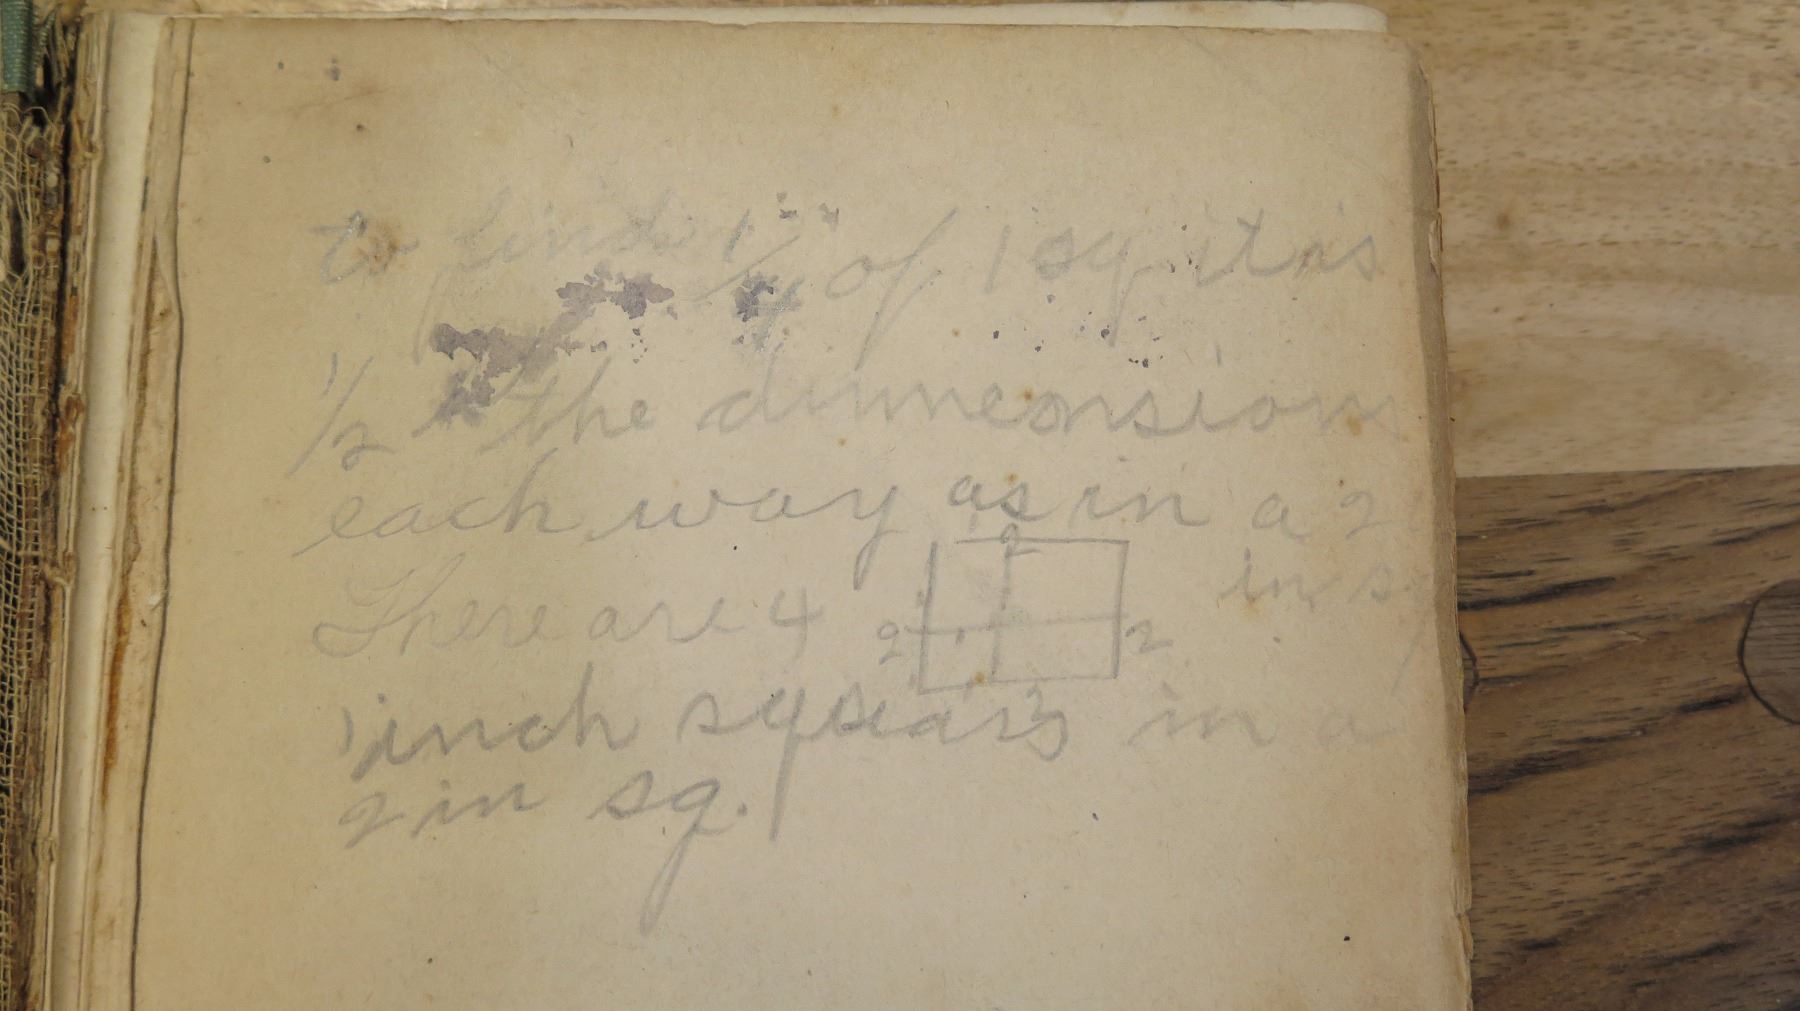 to find 1/4 of 1 sq it is
1/2 the dimmensions
each way as in a 2
in sq
2
There are 4 2 2
2
1 inch sqears in a
2 in sq.